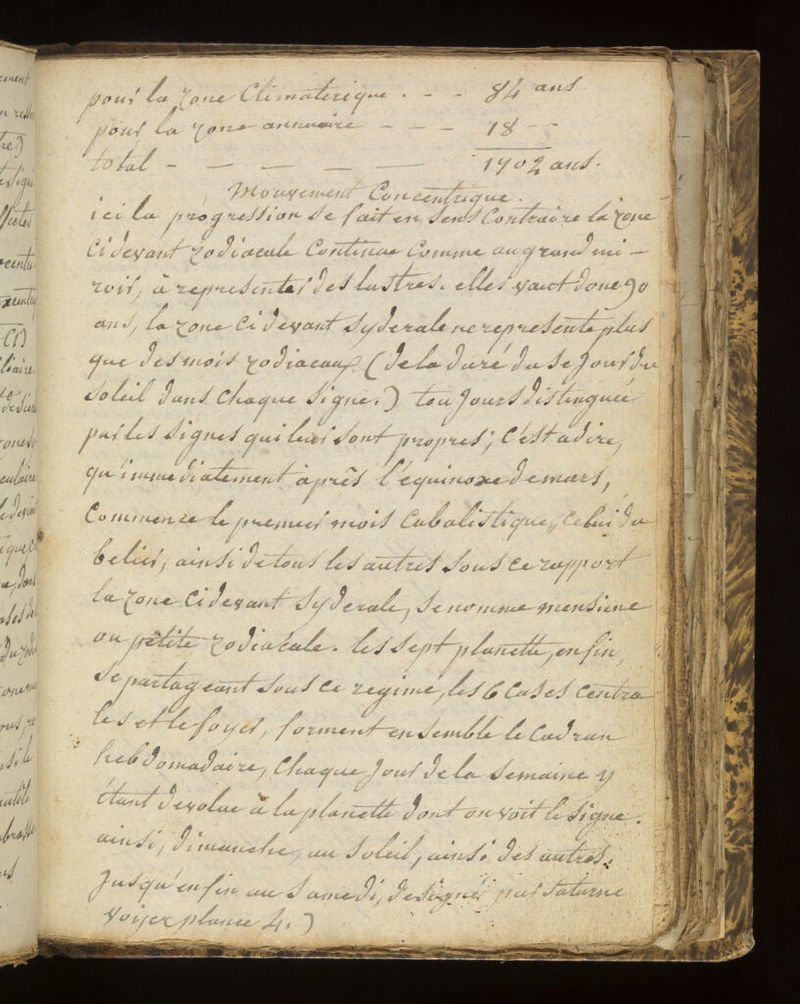 pour la zone Climaterique . - - 84 ans
pour la zone annuaire - - - 18 - -
total - - - - - 1702 ans.
Mouvement Concentrique.
ici la progression se fait en sens Contraire la zone
Ci devant zodiacale Continue Comme au grand mi-
roir, à representer des lustres. elles vaut donc 90
ans, la zone Ci devant syderale ne represente plus
que des mois zodiacaux (de la duré du sejour du
soleil dans chaque signe.) toujours distinguée
par les signes qui leur sont propres; C'est adire,
qu'immediatement après l'équinoxe de mars,
Commence le premier mois Cabalistique, celui du
belier, ainsi de tous les autres sous ce rapport
la zone Cidevant syderale, se nomme mensiene
ou petite zodiacale. les sept planette, enfin,
se partageant sous ce regime, les 6 Cases Centra
les et le foyer, forment ensemble le Cadran
hebdomadaire, Chaque jour de la semaine y
étant devolue à la planette dont on voit le signe.
ainsi, dimanche, au soleil, ainsi des autres.
Jusqu'enfin au samedi, designé par saturne
voyez plance 4.)